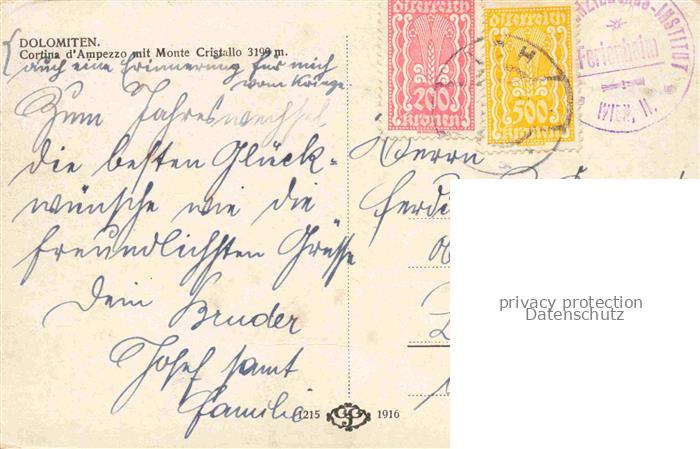 DOLOMITEN.
Cortina d'Ampezzo mit Monte Cristallo 3199 m.
(auch eine Erinnerung für mich
vom Kriege
Zum Jahreswechsel
die besten Glück-
wünsche wie die
freundlichsten Grüsse
Dein Bruder
Josef samt
Familie
1215 1916
österreich
200
kronen
österreich
500
kronen
INSTITUT
Ferienheim
Herrn
Ferdi
privacy protection
Datenschutz